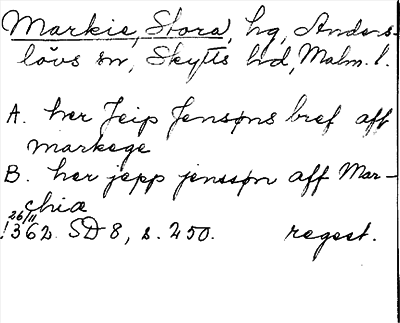 Markie, Stora, hg, Anders-
lövs sn, Skytts hd, Malm. l.
A. her Jeip Jensøns bref aff
markege
B. her jepp jenssøn aff Mar-
chiæ
26/11
1362 SD 8, s. 250. regest.